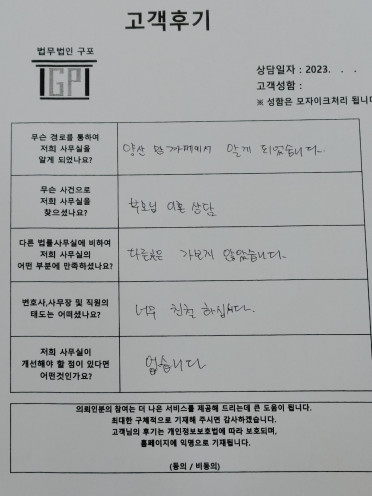 고객후기
법무법인 구포
GP
상담일자 : 2023. . .
고객성함 :
※ 성함은 모자이크처리 됩니다
무슨 경로를 통하여
저희 사무실을
알게 되었나요?
양산 맘카페에서 알게 되었습니다.
무슨 사건으로
저희 사무실을
찾으셨나요?
부모님 이혼 상담
다른 법률사무실에 비하여
저희 사무실의
어떤 부분에 만족하셨나요?
다른곳은 가보지 않았습니다.
변호사,사무장 및 직원의
태도는 어떠셨나요?
너무 친절 하십니다.
저희 사무실이
개선해야 할 점이 있다면
어떤것인가요?
없습니다
의뢰인분의 참여는 더 나은 서비스를 제공해 드리는데 큰 도움이 됩니다.
최대한 구체적으로 기재해 주시면 감사하겠습니다.
고객님의 후기는 개인정보보호법에 따라 보호되며,
홈페이지에 익명으로 기재됩니다.
(동의 / 비동의)